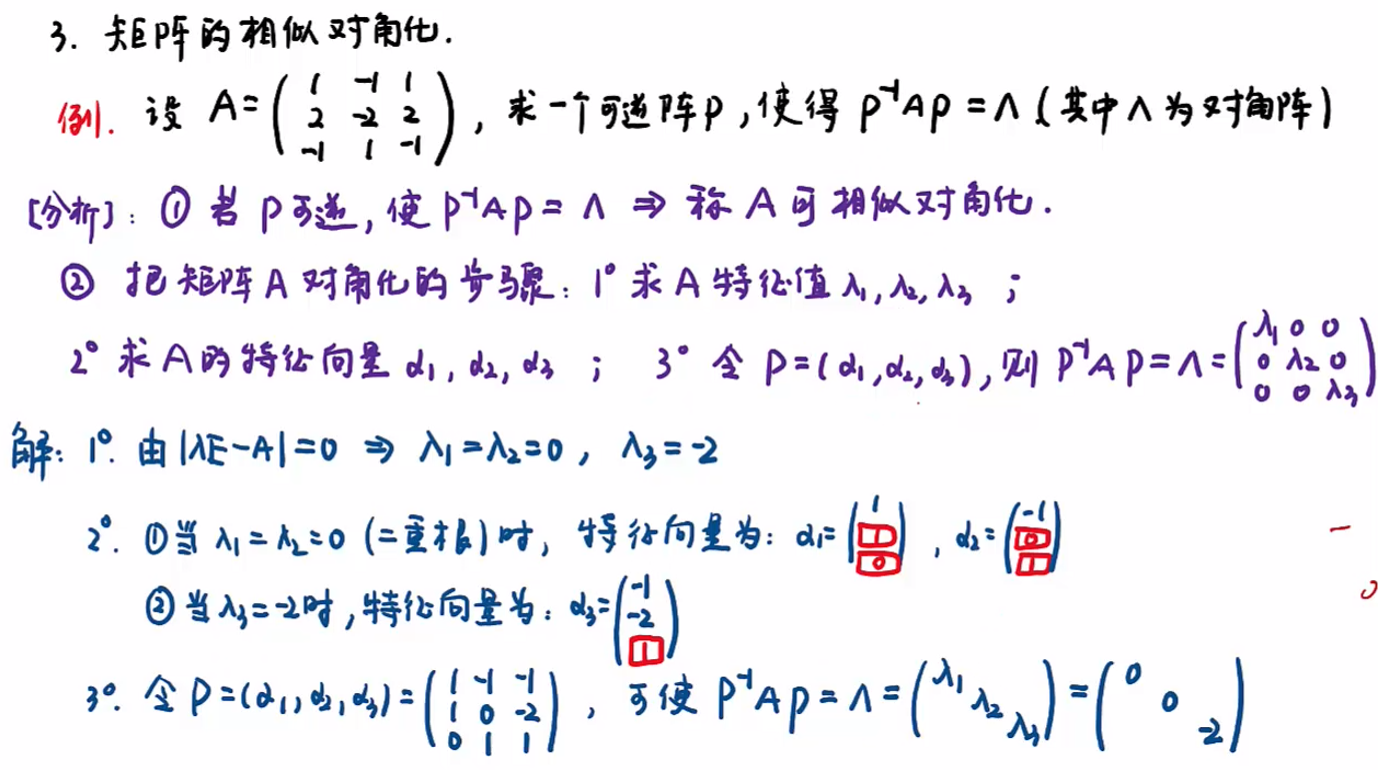 3. 矩阵的相似对角化.
例. 设 A=(1 -1 1; 2 -2 2; -1 1 -1), 求一个可逆阵P, 使得 P⁻¹AP=Λ (其中Λ为对角阵)
[分析]: ① 若P可逆, 使P⁻¹AP=Λ ⇒ 称A可相似对角化.
② 把矩阵A对角化的步骤: 1° 求A特征值λ₁,λ₂,λ₃ ;
2° 求A的特征向量α₁,α₂,α₃ ; 3° 令P=(α₁,α₂,α₃), 则P⁻¹AP=Λ=(λ₁ 0 0; 0 λ₂ 0; 0 0 λ₃)
解: 1°. 由|λE-A|=0 ⇒ λ₁=λ₂=0, λ₃=-2
2°. ①当λ₁=λ₂=0 (二重根)时, 特征向量为: α₁=(1; 1; 0), α₂=(-1; 0; 1)
②当λ₃=-2时, 特征向量为: α₃=(-1; -2; 1)
3°. 令P=(α₁,α₂,α₃)=(1 -1 -1; 1 0 -2; 0 1 1), 可使P⁻¹AP=Λ=(λ₁ λ₂ λ₃)=(0 0 -2)